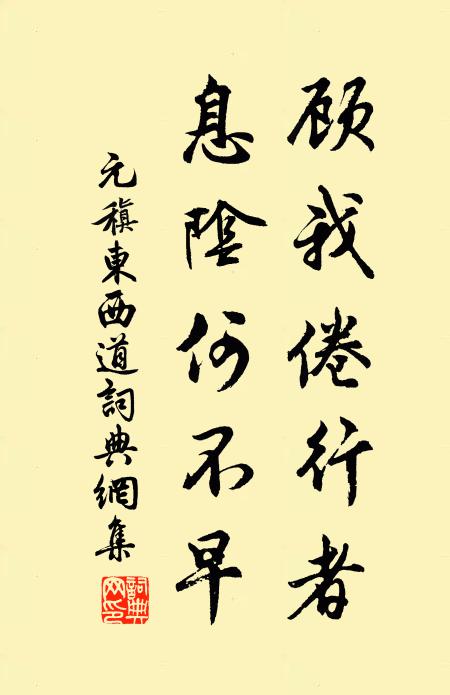 顾我倦行者
息陰何不早
元稹東西道詞典網集
詞典网印